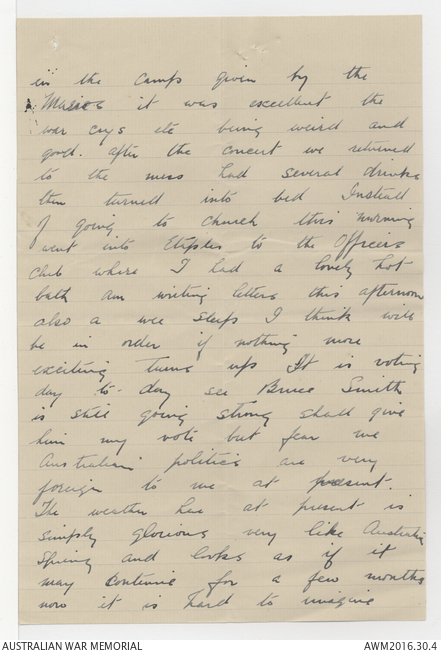 in the camp given by the
Maories it was excellent the
war crys etc being weird and
good. after the concert we returned
to the mess had several drinks
then turned into bed Instead
of going to church this morning
went into Etaples to the Officers
club where I had a lovely hot
bath am writing letters this afternoon
also a wee sleep I think will
be in order if nothing more
exciting turns up It is voting
day to-day see Bruce Smith
is still going strong shall give
him my vote but fear me
Australian politics are very
foreign to me at present.
The weather here at present is
simply glorious very like Australian
Spring and looks as if it
may continue for a few months
now it is hard to imagine
AUSTRALIAN WAR MEMORIAL
AWM2016.30.4